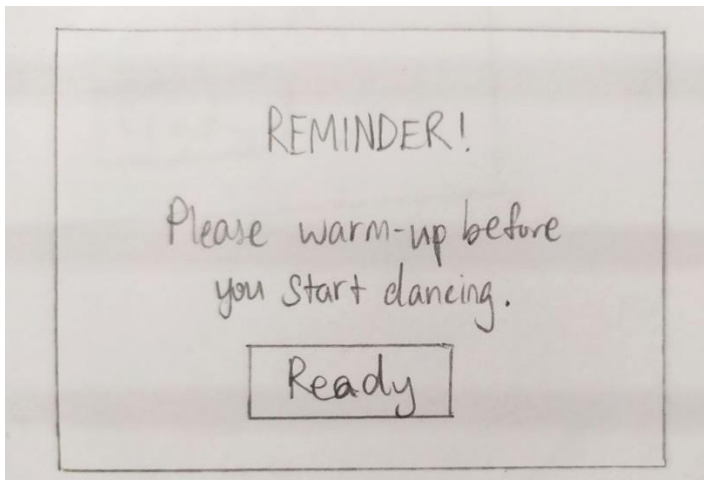 REMINDER!
Please warm-up before
you start dancing.
Ready